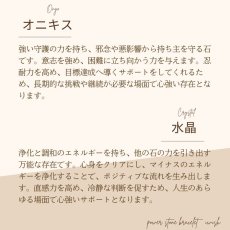 Onyx
オニキス
強い守護の力を持ち、邪念や悪影響から持ち主を守る石
です。意志を強め、困難に立ち向かう力を与えます。忍
耐力を高め、目標達成へ導くサポートをしてくれるた
め、長期的な挑戦や継続が必要な場面で心強い存在とな
ります。
Crystal
水晶
浄化と調和のエネルギーを持ち、他の石の力を引き出す
万能な存在です。心身をクリアにし、マイナスのエネル
ギーを浄化することで、ポジティブな流れを生み出しま
す。直感力を高め、冷静な判断を促すため、人生のあら
ゆる場面で心強いサポートとなります。
power stone bracelet